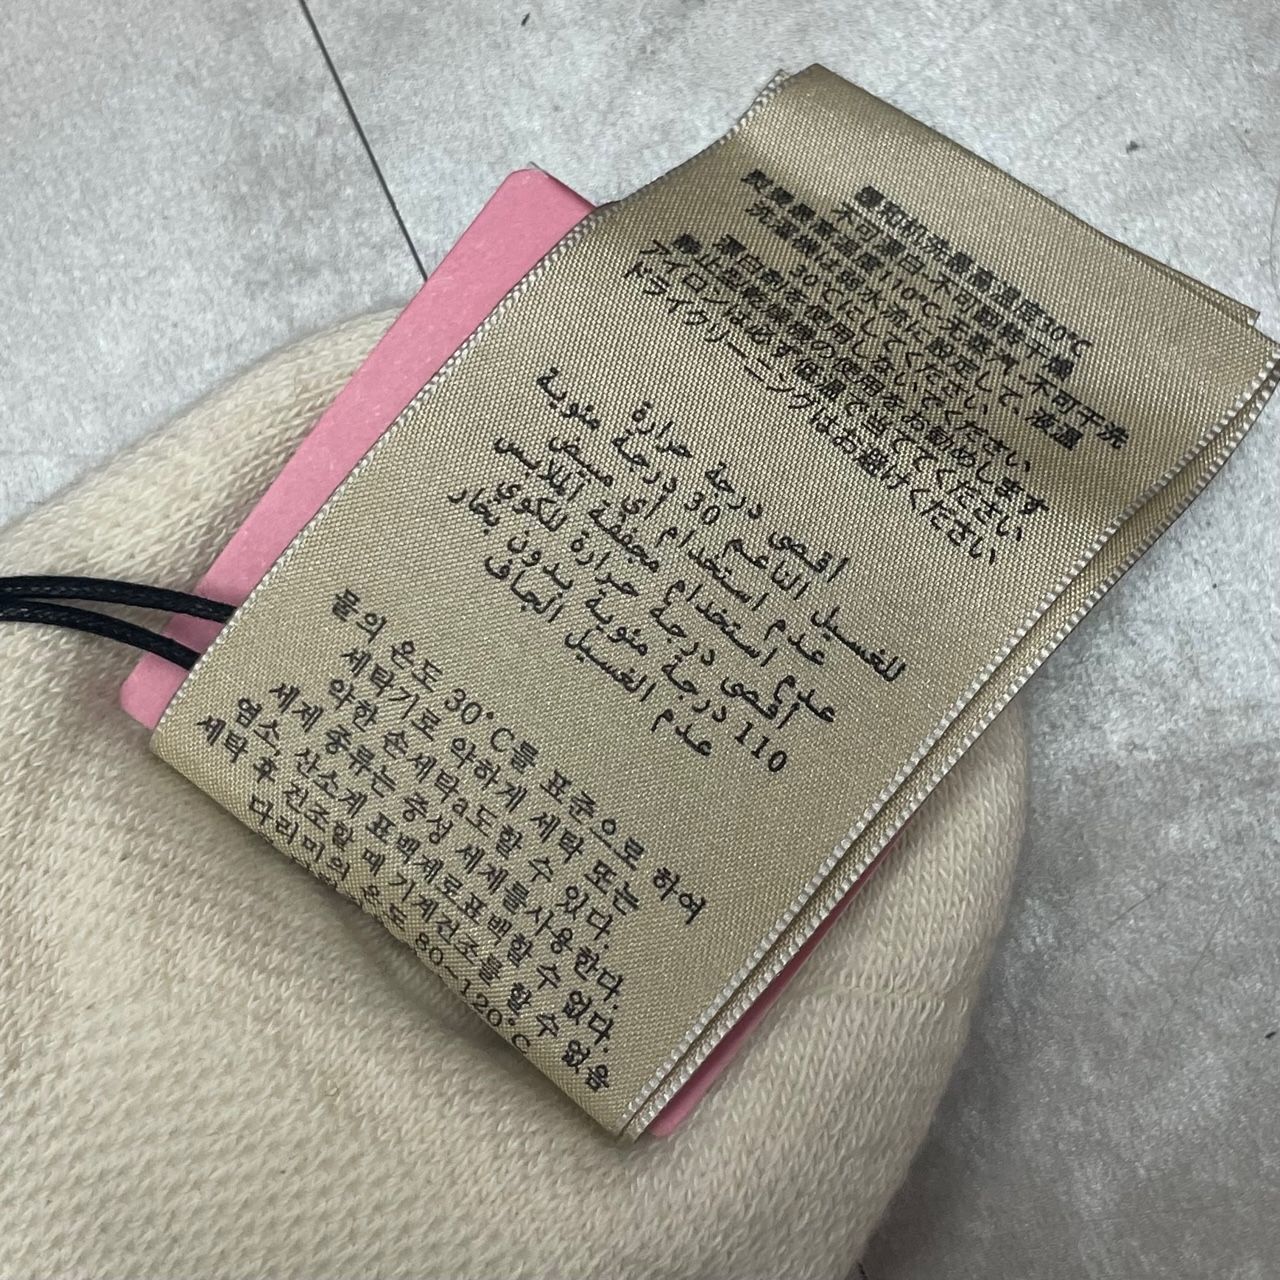 缓和机洗最高温度30℃
不可漂白 不可翻转干燥
熨烫最高温度110℃ 无蒸汽 不可干洗
洗濯機は弱水流に設定して、液温
30℃にしてください
漂白剤を使用しないでください
静止型乾燥機の使用をお勧めします
アイロンは必ず低温で当ててください
ドライクリーニングはお避けください
اقصى درجة حرارة
للغسيل الناعم 30 درجة مئوية
عدم استخدام أي مبيض
عدم استخدام مجففة الملابس
أقصى درجة حرارة للكوي
110 درجة مئوية بدون بخار
عدم الغسيل الجاف
물의 온도 30°C를 표준으로 하여
세탁기로 약하게 세탁 또는
약한 손세탁a도할 수 있다.
세제 종류는 중성 세제를사용한다.
염소, 산소계 표백제로표백할 수 없다.
세탁 후 건조할 때 기계건조를 할 수 없음
다리미의 온도 80~120°C